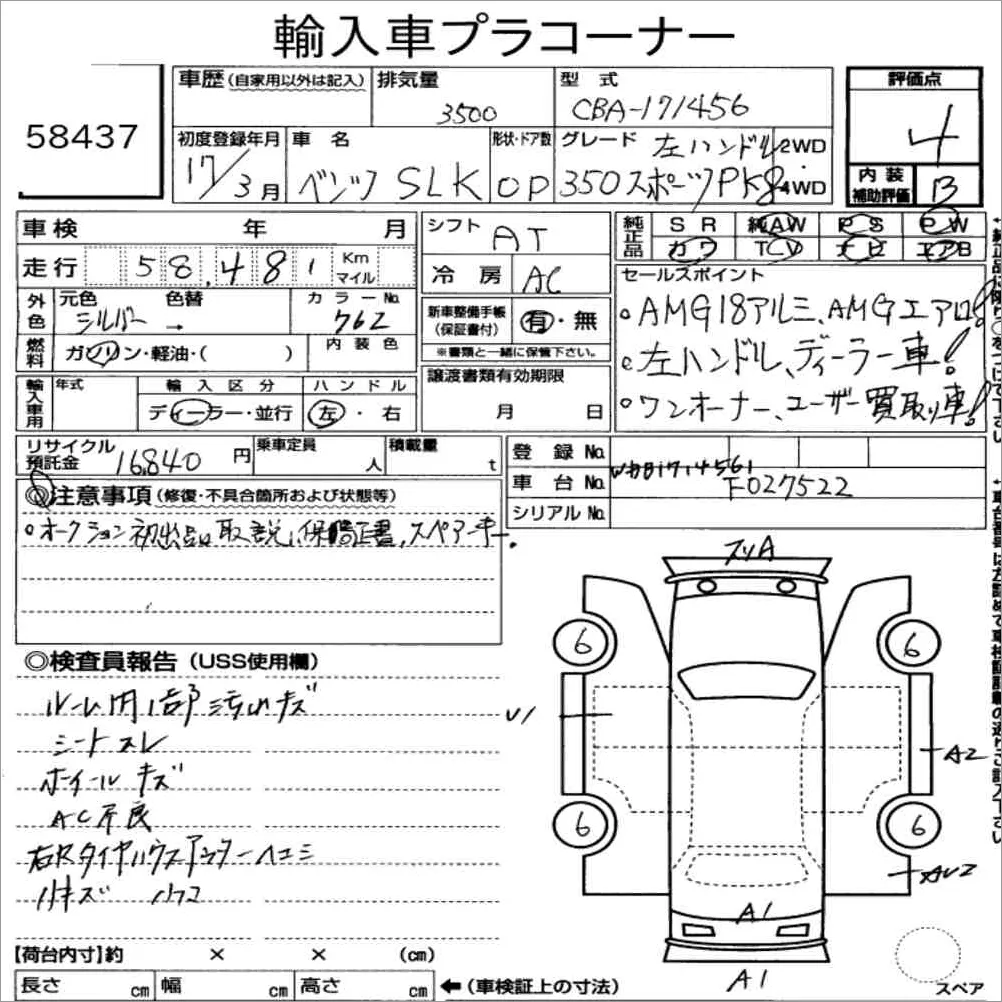 輸入車プラコーナー
58437
車歴(自家用以外は記入)
排気量
3500
型式
CBA-171456
評価点
4
初度登録年月
17/3月
車名
ベンツ SLK
形状・ドア数
OP
グレード 左ハンドル
350スポーツPK8
2WD
4WD
内装
補助評価
B
車検 年 月
走行 58,481 Km マイル
外色
元色 色替
シルバー →
カラーNo.
762
燃料
ガソリン・軽油・( )
内装色
輸入車用
年式
輸入区分
ディーラー・並行
ハンドル
左・右
シフト AT
冷房 AC
新車整備手帳
(保証書付)
有・無
※書類と一緒に保管下さい。
譲渡書類有効期限
月 日
純正品
SR 純AW PS PW
カワ TV ナビ エアB
セールスポイント
○AMG18アルミ、AMGエアロ!
○左ハンドル、ディーラー車!
○ワンオーナー、ユーザー買取り車!
リサイクル
預託金
16840円
乗車定員
人
積載量
t
登録No.
車台No.
WDB1714561
F027522
シリアルNo.
◎注意事項(修復・不具合箇所および状態等)
○オークション初出品。取説、保証書、スペアーキー。
◎検査員報告(USS使用欄)
シートスレ
ホイールキズ
AC不良
小キズ 小凹
フリA
6
6
U1
A2
6
6
AU2
A1
A1
スペア
【荷台内寸】約 × × (cm)
長さ cm 幅 cm 高さ cm
←(車検証上の寸法)